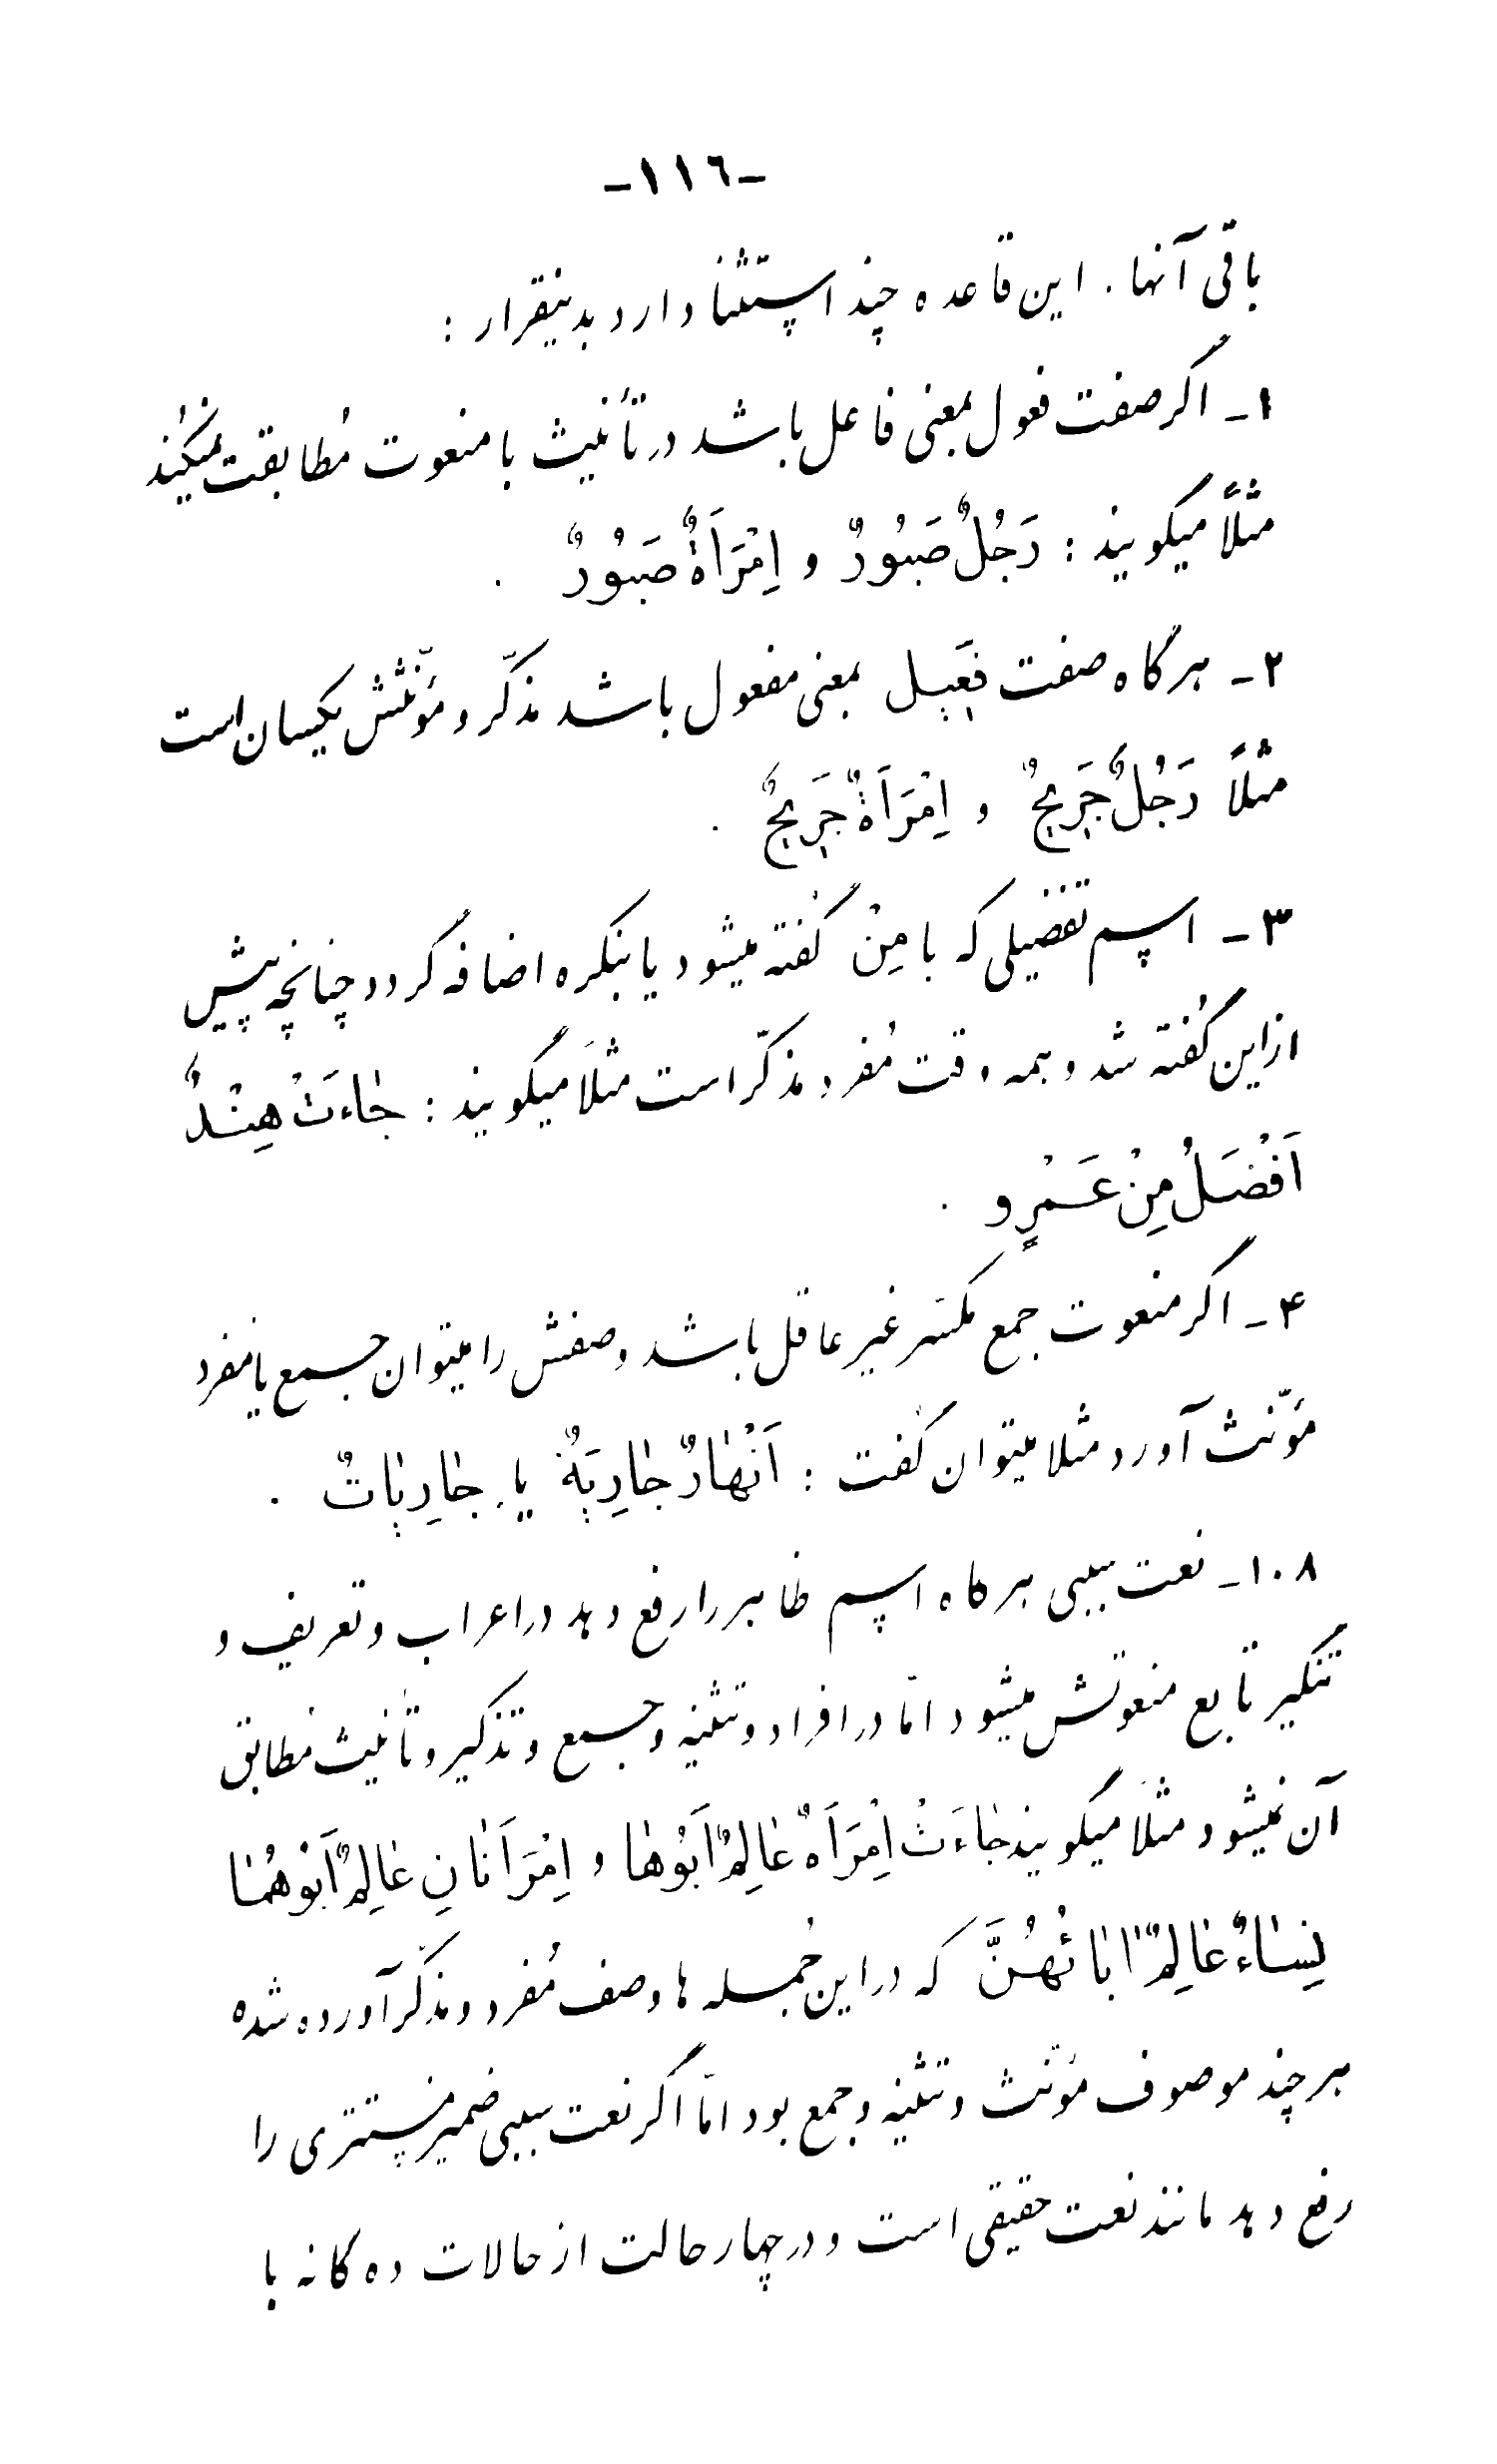 -١١٦-
باقی آنها . این قاعده چند استثنا دارد بدینقرار :
١- اگر صفت فعول بمعنی فاعل باشد در تأنیث با منعوت مُطابقت نمیکُند
مثلاً میگویند : رَجُلٌ صَبُورٌ و اِمْرَأَةٌ صَبُورٌ .
٢- هرگاه صفت فَعِیل بمعنی مفعول باشد مذکّر و مؤنّثش یکیسان است
مثلاً رَجُلٌ جَرِیحٌ و اِمْرَأَةٌ جَرِیحٌ .
٣- اسم تفضیلی که با مِنْ گفته میشود یا بنکره اضافه گردد چنانچه پیش
از این گفته شد و همه وقت مُفرد مذکّر است مثلاً میگویند : جٰاءَتْ هِنْدٌ
اَفْضَلُ مِنْ عَمْرٍو .
۴- اگر منعوت جمع مکسّر غیر عاقل باشد وصفش را میتوان جمع یا مُفرد
مؤنّث آورد مثلا میتوان گفت : اَنْهٰارٌ جٰارِیَةٌ یا جٰارِیٰاتٌ .
١٠٨- نعت سببی هرگاه اسم ظاهر را رفع دهد در اعراب و تعریف و
تنکیر تابع منعوتش میشود امّا در افراد و تثنیه و جمع و تذکیر و تأنیث مُطابق
آن نمیشود مثلاً میگویند جٰاءَتْ اِمْرَأَهٌ عٰالِمٌ اَبُوهٰا و اِمْرَأَتٰانِ عٰالِمٌ اَبُوهُمٰا
نِسٰاءٌ عٰالِمٌ اٰبٰائُهُنَّ که در این جُمله ها وصف مُفرد و مذکّر آورده شده
هر چند موصوف مؤنّث و تثنیه و جمع بود امّا اگر نعت سببی ضمیر مُستتری را
رفع دهد مانند نعت حقیقی است و در چهار حالت از حالات ده گانه با